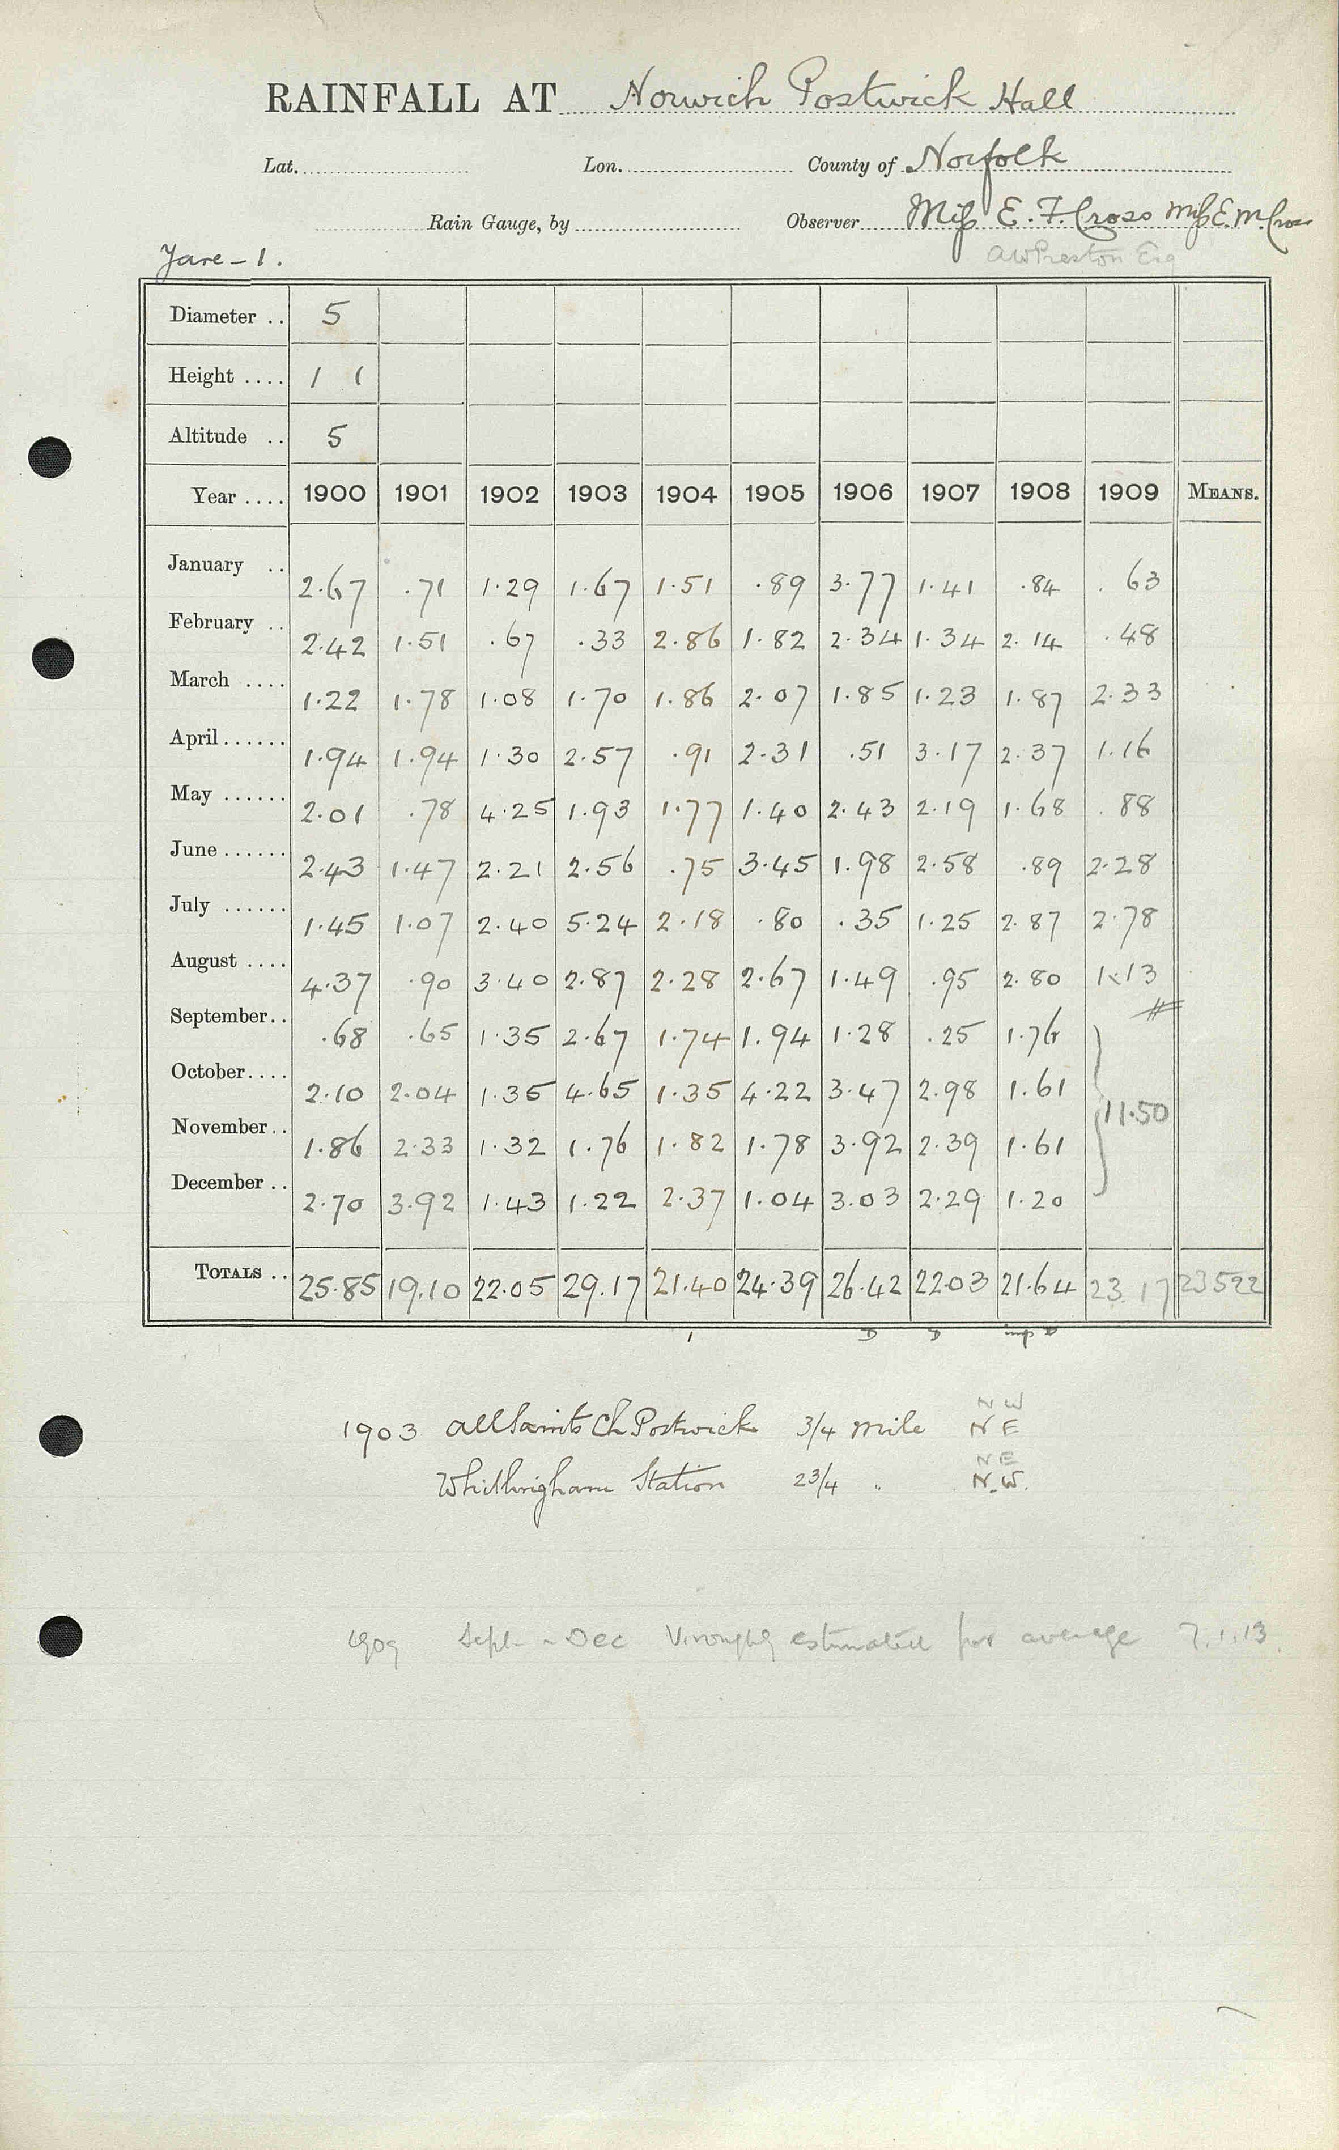 RAINFALL AT Norwich Postwick Hall
Lat. Lon. County of Norfolk
Rain Gauge, by Observer Miss E. F. Cross Miss E. M. Cross
Yare - 1. A W Preston Esq
Diameter .. 5
Height .... 1 1
Altitude .. 5
Year .... 1900 1901 1902 1903 1904 1905 1906 1907 1908 1909 MEANS.
January .. 2.67 .71 1.29 1.67 1.51 .89 3.77 1.41 .84 .63
February .. 2.42 1.51 .67 .33 2.86 1.82 2.34 1.34 2.14 .48
March .... 1.22 1.78 1.08 1.70 1.86 2.07 1.85 1.23 1.87 2.33
April ...... 1.94 1.94 1.30 2.57 .91 2.31 .51 3.17 2.37 1.16
May ...... 2.01 .78 4.25 1.93 1.77 1.40 2.43 2.19 1.68 .88
June ...... 2.43 1.47 2.21 2.56 .75 3.45 1.98 2.58 .89 2.28
July ...... 1.45 1.07 2.40 5.24 2.18 .80 .35 1.25 2.87 2.78
August .... 4.37 .90 3.40 2.87 2.28 2.67 1.49 .95 2.80 1.13
September .. .68 .65 1.35 2.67 1.74 1.94 1.28 .25 1.76
October .... 2.10 2.04 1.35 4.65 1.35 4.22 3.47 2.98 1.61
11.50
November .. 1.86 2.33 1.32 1.76 1.82 1.78 3.92 2.39 1.61
December .. 2.70 3.92 1.43 1.22 2.37 1.04 3.03 2.29 1.20
TOTALS .. 25.85 19.10 22.05 29.17 21.40 24.39 26.42 22.03 21.64 23.17 23522
D D imp D
NW
1903 All Saints Ch Postwick 3/4 mile NE
NE
Whitlingham Station 2 3/4 " N.W.
1909 Sept - Dec V. roughly estimated for average 7.1.13.